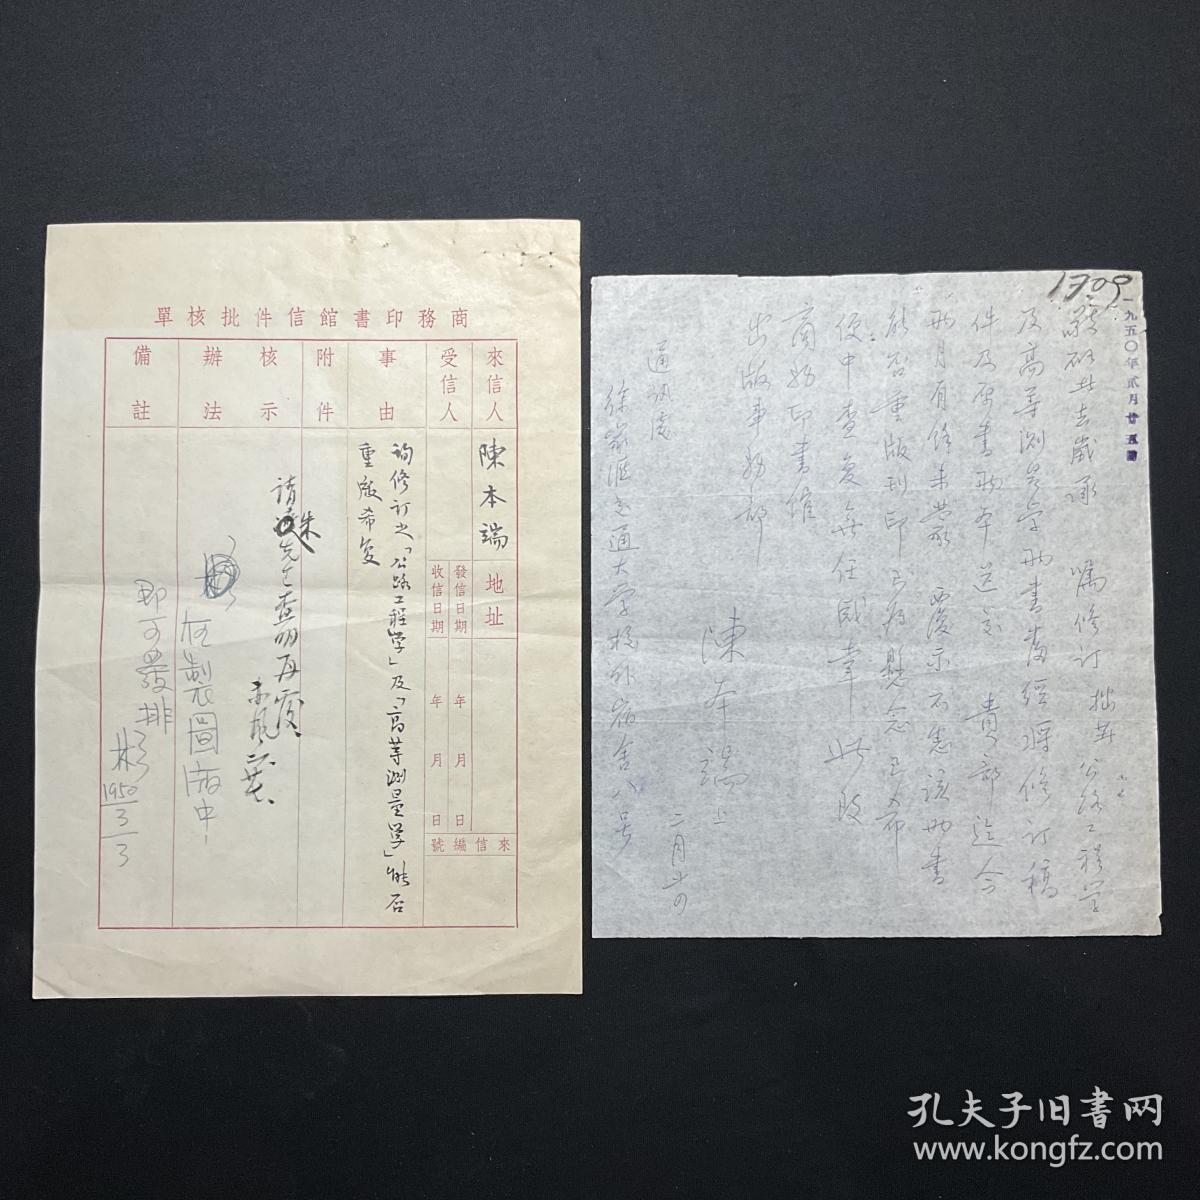 商務印書館信件批核單
來信人
陳本端
地址
受信人
發信日期 年 月 日
收信日期 年 月 日
來信編號
事由
詢修訂之「公路工程學」及「高等測量學」能否
重版希复
附件
核示
請朱先生查明再覆
辦法
在製圖版中
備註
即可發排
彬
1950/3/3
1709
一九五〇年贰月廿五
去歲承 囑修訂 拙著公路工程學
及高等測量學兩書 後經將修訂稿
件及原書兩本送交 貴部迄今
兩月有餘未蒙 覆示不悉該兩書
能否重版刊印 至希
便中查复無任感幸 此致
商務印書館
出版事務部
陳本端上
二月廿四
通訊處
徐家滙交通大學校外宿舍八号
孔夫子旧书网
www.kongfz.com